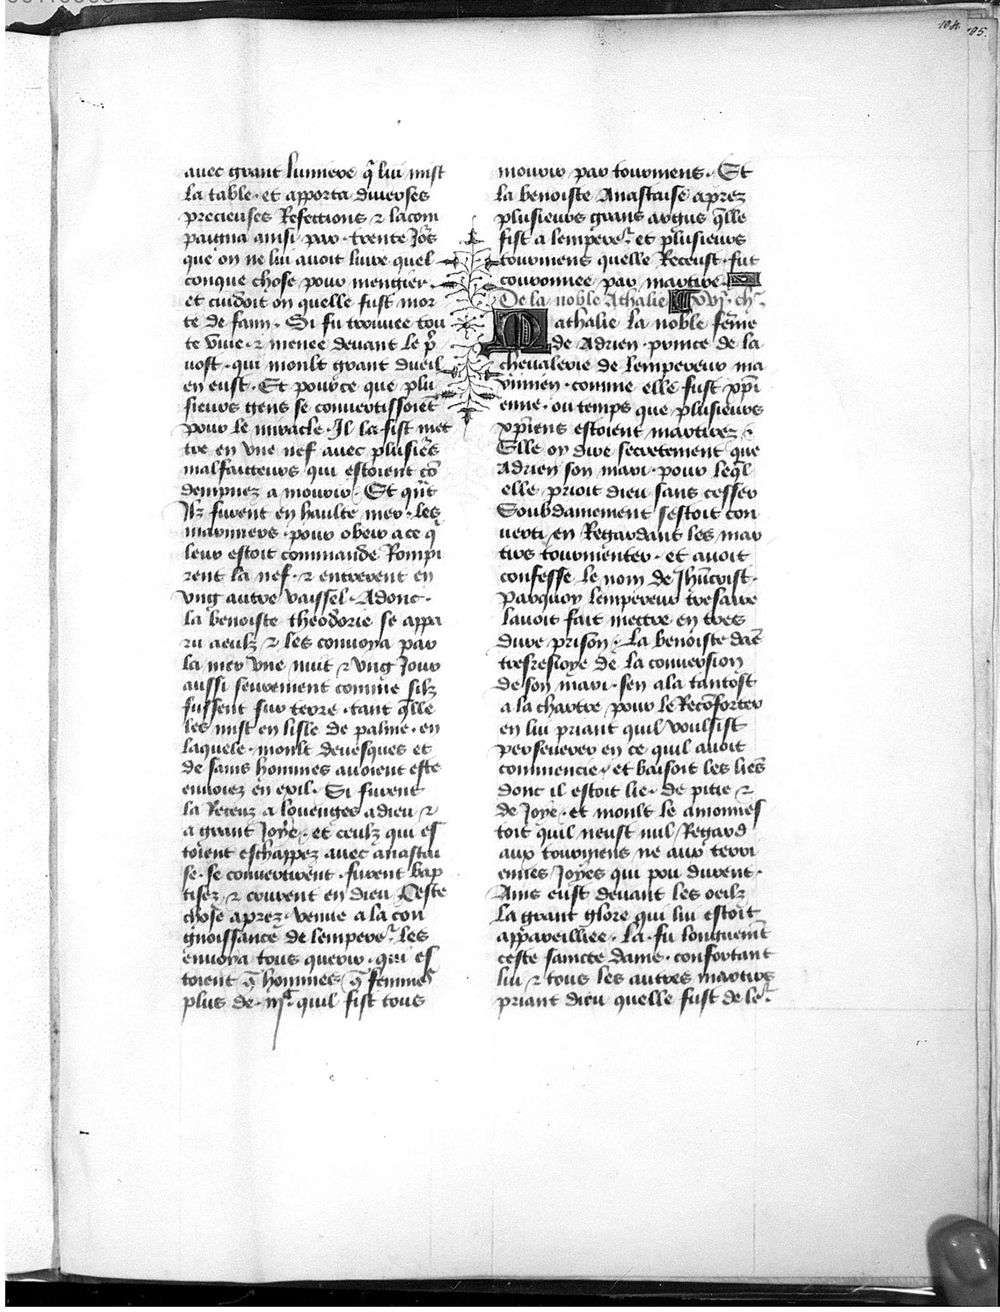 104. 105.
auec grant lumiere q̃ lui mist
la table · et apporta diuerses
precieuses Refections ⁊ lacom
paigna ainsi par · trente Jo͛s
que on ne lui auoit liure quel
conque chose pour mengier ·
et cuidoit on quelle fust mor
te de faim · Si fu trouuee tou
te viue · ⁊ menee deuant le p̃
uost · qui moult grant dueil
en eust · Et pource que plu
sieurs gens se conuertissoiẽt
pour le miracle · Il la fist met
tre en vne nef auec plusie͛s
malfaitteurs qui estoient cõ
dempnez a mourir · Et qñt
Ilz furent en haulte mer · les
marinners · pour obeir a ce q̃
leur estoit commande Rompi
rent la nef · ⁊ entrerent en
vng autre vaissel · Adonc ·
la benoiste theodorie se appa
ru aeulz ⁊ les conuoya par
la mer vne nuit ⁊ vng Jour
aussi seurement comme silz
fussent sur terre · tant q̃lle
les mist en lisle de palme · en
laquele · moult deuesques et
de sains hommes auoient este
enuoiez en exil · Si furent
la Receuz a louenges a dieu ⁊
a grant Joye · et ceulz qui es
toient eschappez auec anastai
se · se conuertirent · furent bap
tisez ⁊ creurent en dieu Ceste
chose aprez · venue a la con
gnoissance de lempere͛ · les
enuoya tous querir · qui es
toient q̃ hommes q̃ femmes
plus de · ijᶜ · quil fist tous
mourir par tourmens · Et
la benoiste Anastaise aprez
plusieurs grans argus q̃lle
fist a lempere͛ · et plusieurs
tourmens quelle Receust · fut
couronnee par martire ·
De la noble Athalie xvj · ch͛ ·
Nathalie la noble fẽme
de Adrien · prince de la
cheualerie de lempereur ma
ximien · comme elle fust xp̃i
enne · ou temps que plusieurs
xp̃iens estoient martirez ·
Elle oy dire secretement que
Adrien son mari · pour leq̃l
elle prioit dieu sans cesser
Soubdainement sestoit con
uerti en Regardant les mar
tirs tourmenter · et auoit
confesse le nom de Jhũcrist ·
Parquoy lempereur tresaire
lauoit fait mettre en tres
dure prison · La benoiste dãe
tresresioye de la conuersion
de son mari · sen ala tantost
a la chartre pour le Recõforter
en lui priant quil voulsist
perseuerer en ce quil auoit
commencie · et baisoit les liẽs
dont il estoit lie · de pitie ⁊
de Joye · et moult le amonnes
toit quil neust nul Regard
aux tourmens ne aux terri
ennes Joyes qui pou durent ·
Ains eust deuant les oeilz
La grant glore qui lui estoit
appareilliee · La · fu longuemẽt
ceste saincte dame · confortant
lui ⁊ tous les autres martirs
priant dieu quelle fust de le͛